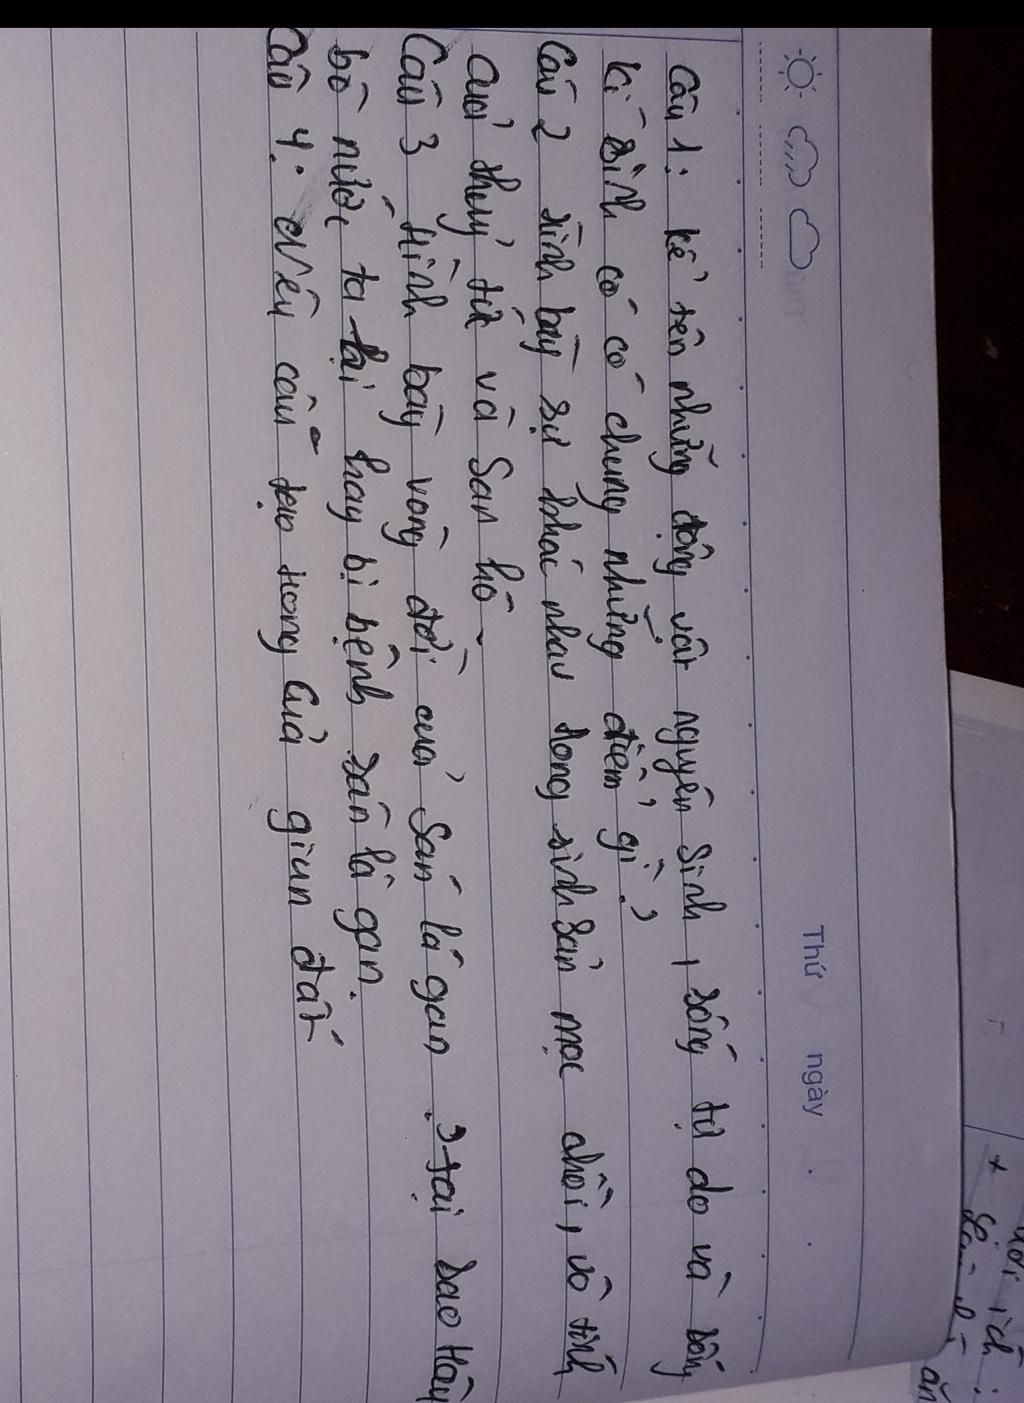 Thứ ngày
Câu 1: kể tên những động vật nguyên sinh, sống tự do và sống
kí sinh có có chung những điểm gì?
Câu 2 trình bày sự khác nhau trong sinh sản mọc chồi, vô tính
của thuỷ tức và San hô
Câu 3 trình bày vòng đời của Sán lá gan? tại sao trâu
bò nước ta lại hay bị bệnh sán lá gan.
Câu 4: Nêu cấu tạo trong của giun đất